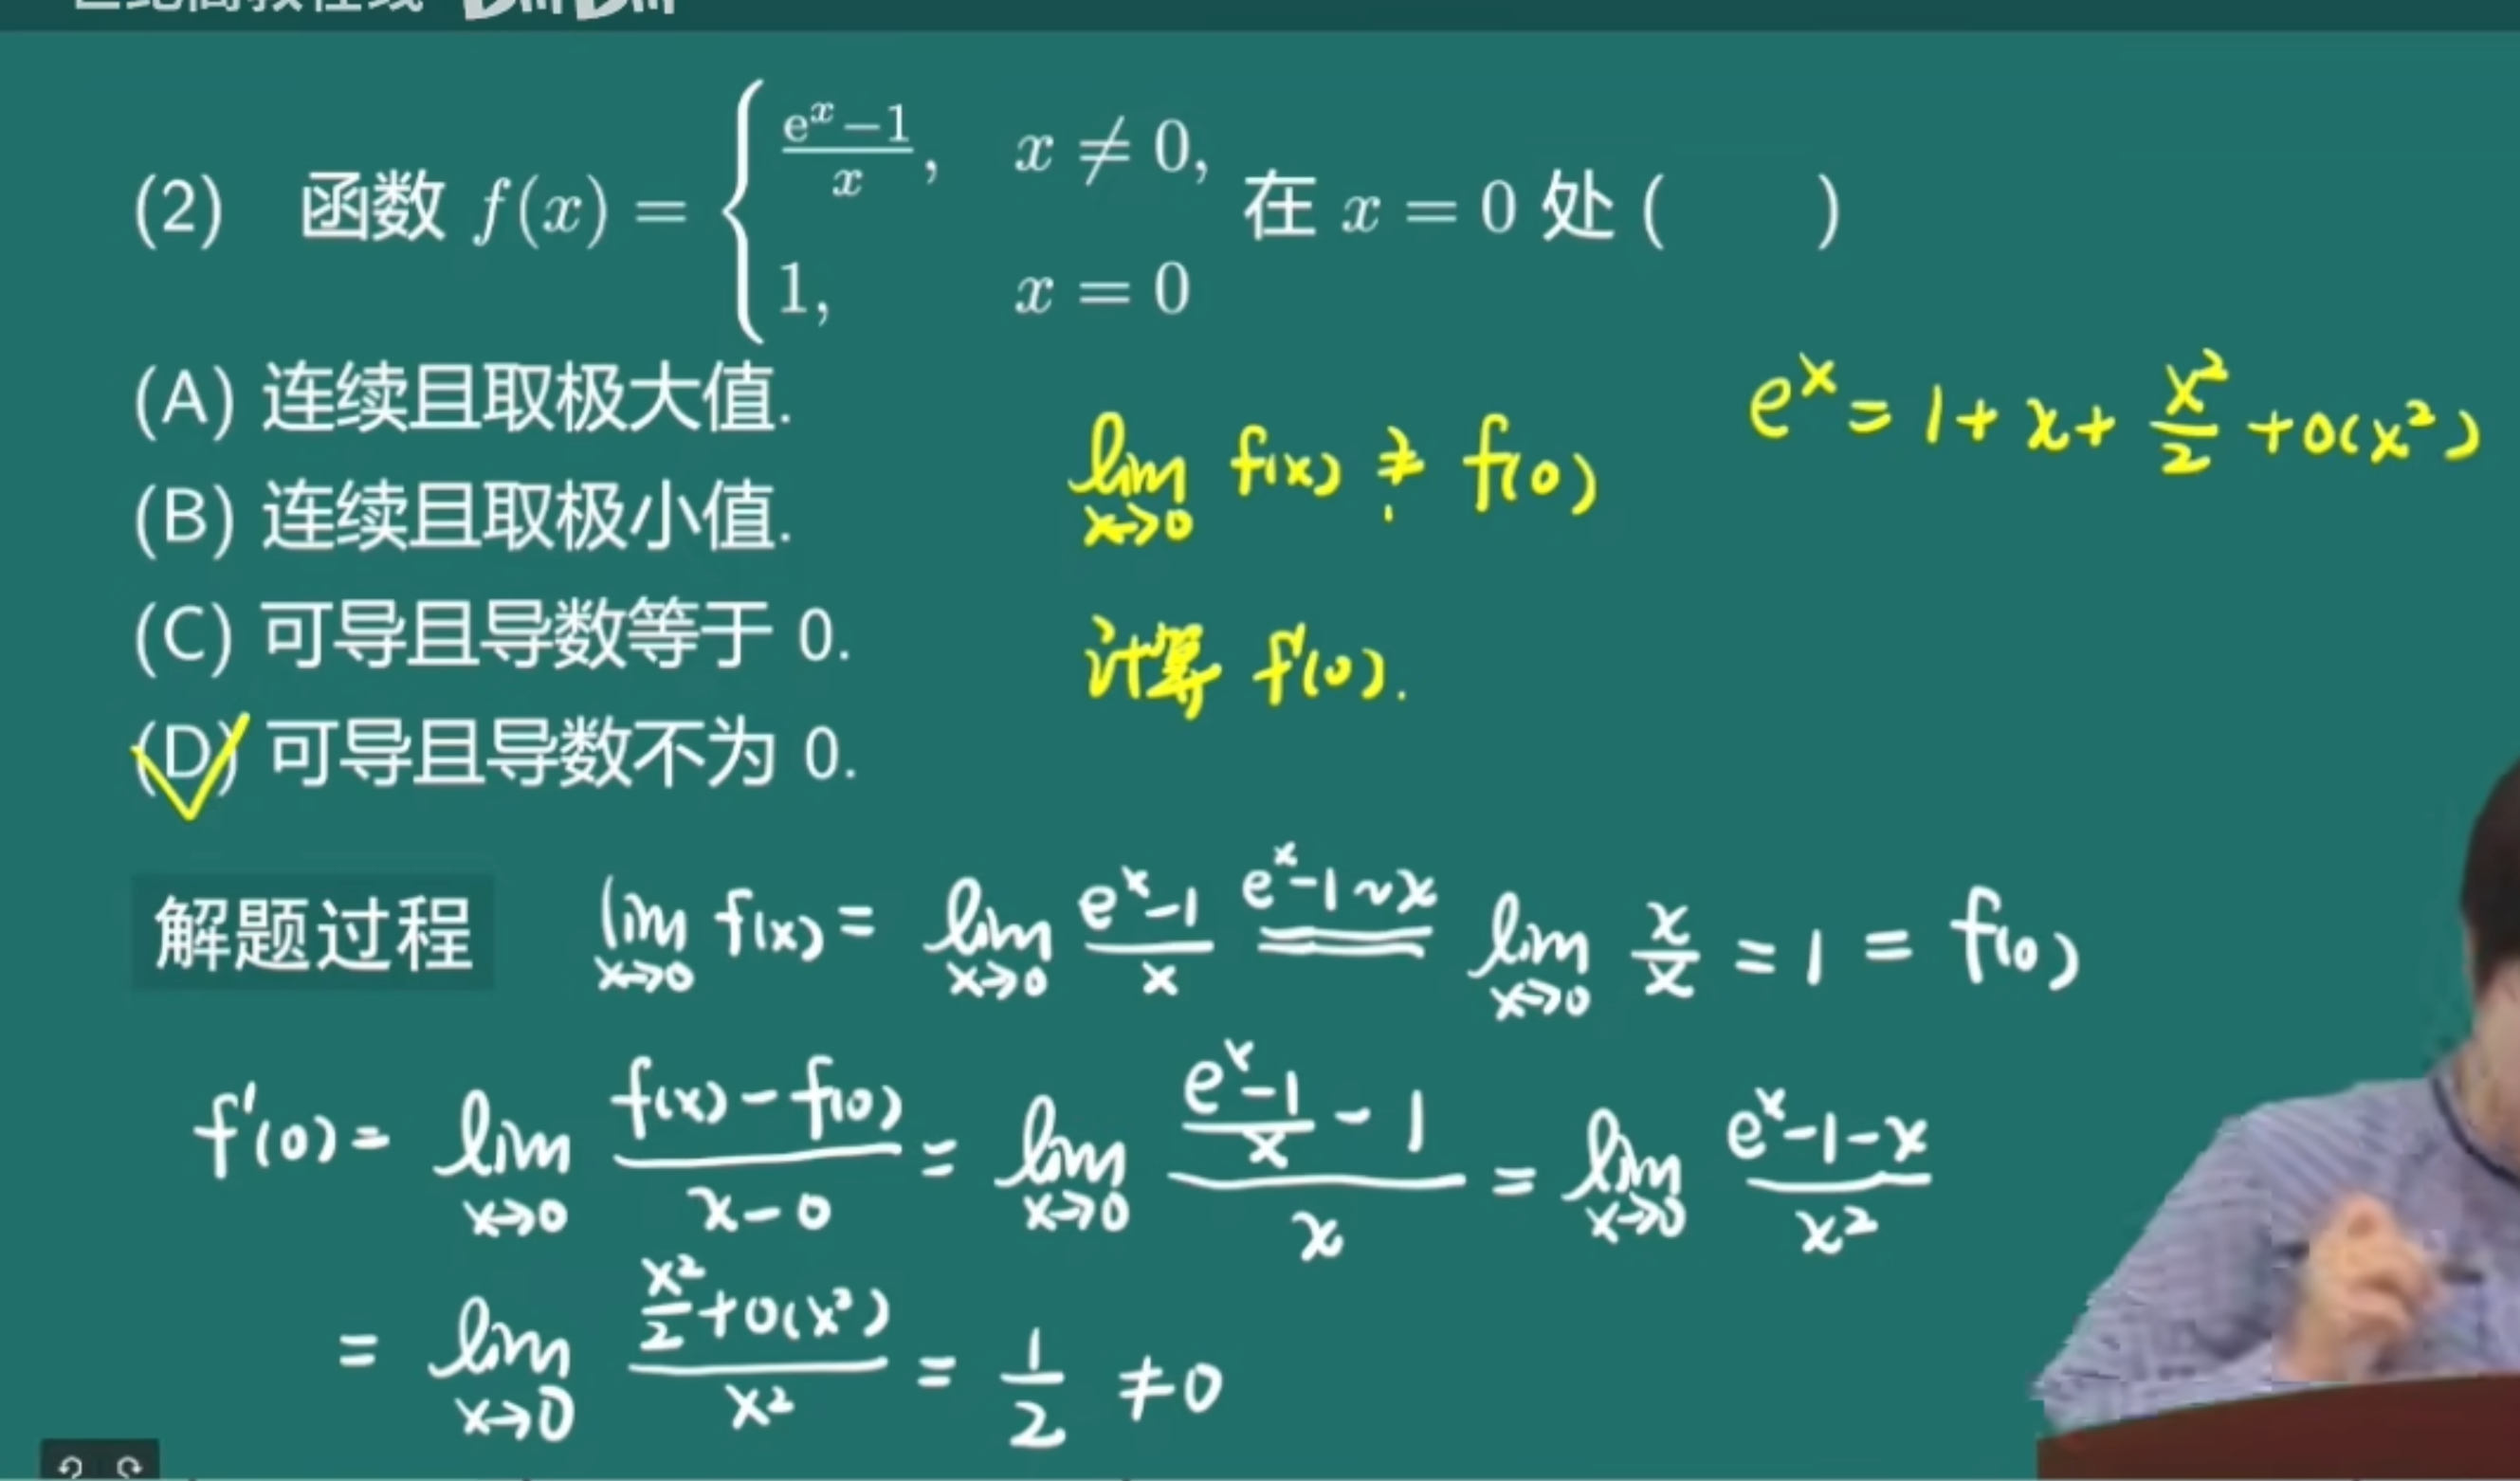 (2) 函数 f(x) = { (eˣ−1)/x, x ≠ 0, 1, x = 0 在 x = 0 处 ( )
(A) 连续且取极大值.
(B) 连续且取极小值.
(C) 可导且导数等于 0.
(D) 可导且导数不为 0.
eˣ = 1 + x + x²/2 + o(x²)
lim x→0 f(x) ≟ f(0)
计算 f'(0).
解题过程
lim x→0 f(x) = lim x→0 (eˣ−1)/x = (eˣ−1~x) lim x→0 x/x = 1 = f(0)
f'(0) = lim x→0 (f(x) − f(0))/(x − 0) = lim x→0 ((eˣ−1)/x − 1)/x = lim x→0 (eˣ−1−x)/x²
= lim x→0 (x²/2 + o(x²))/x² = 1/2 ≠ 0